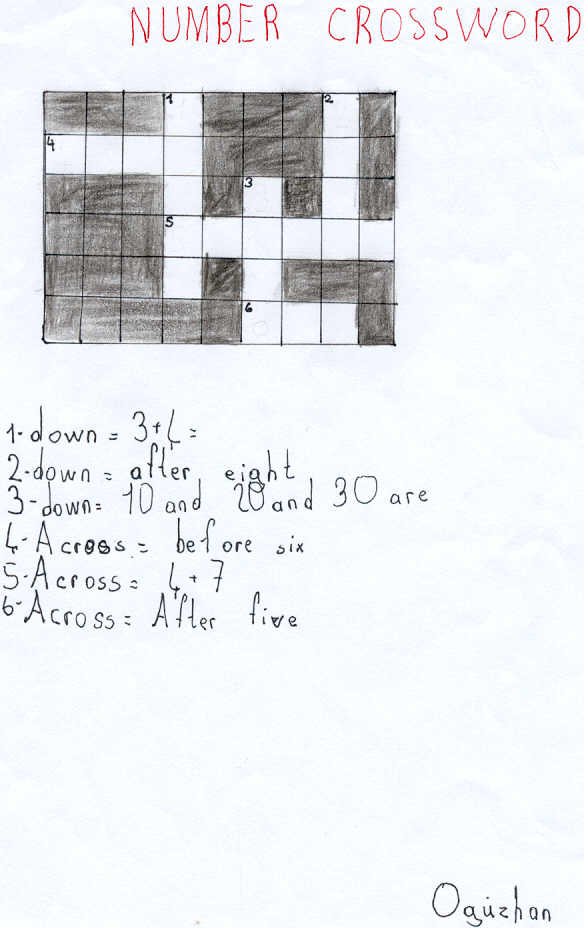 NUMBER CROSSWORD
1 2
4
3
5
6
1-down = 3+4=
2-down = after eight
3-down= 10 and 20 and 30 are
4-Across = before six
5-Across = 4+7
6-Across = After five
Oguzhan